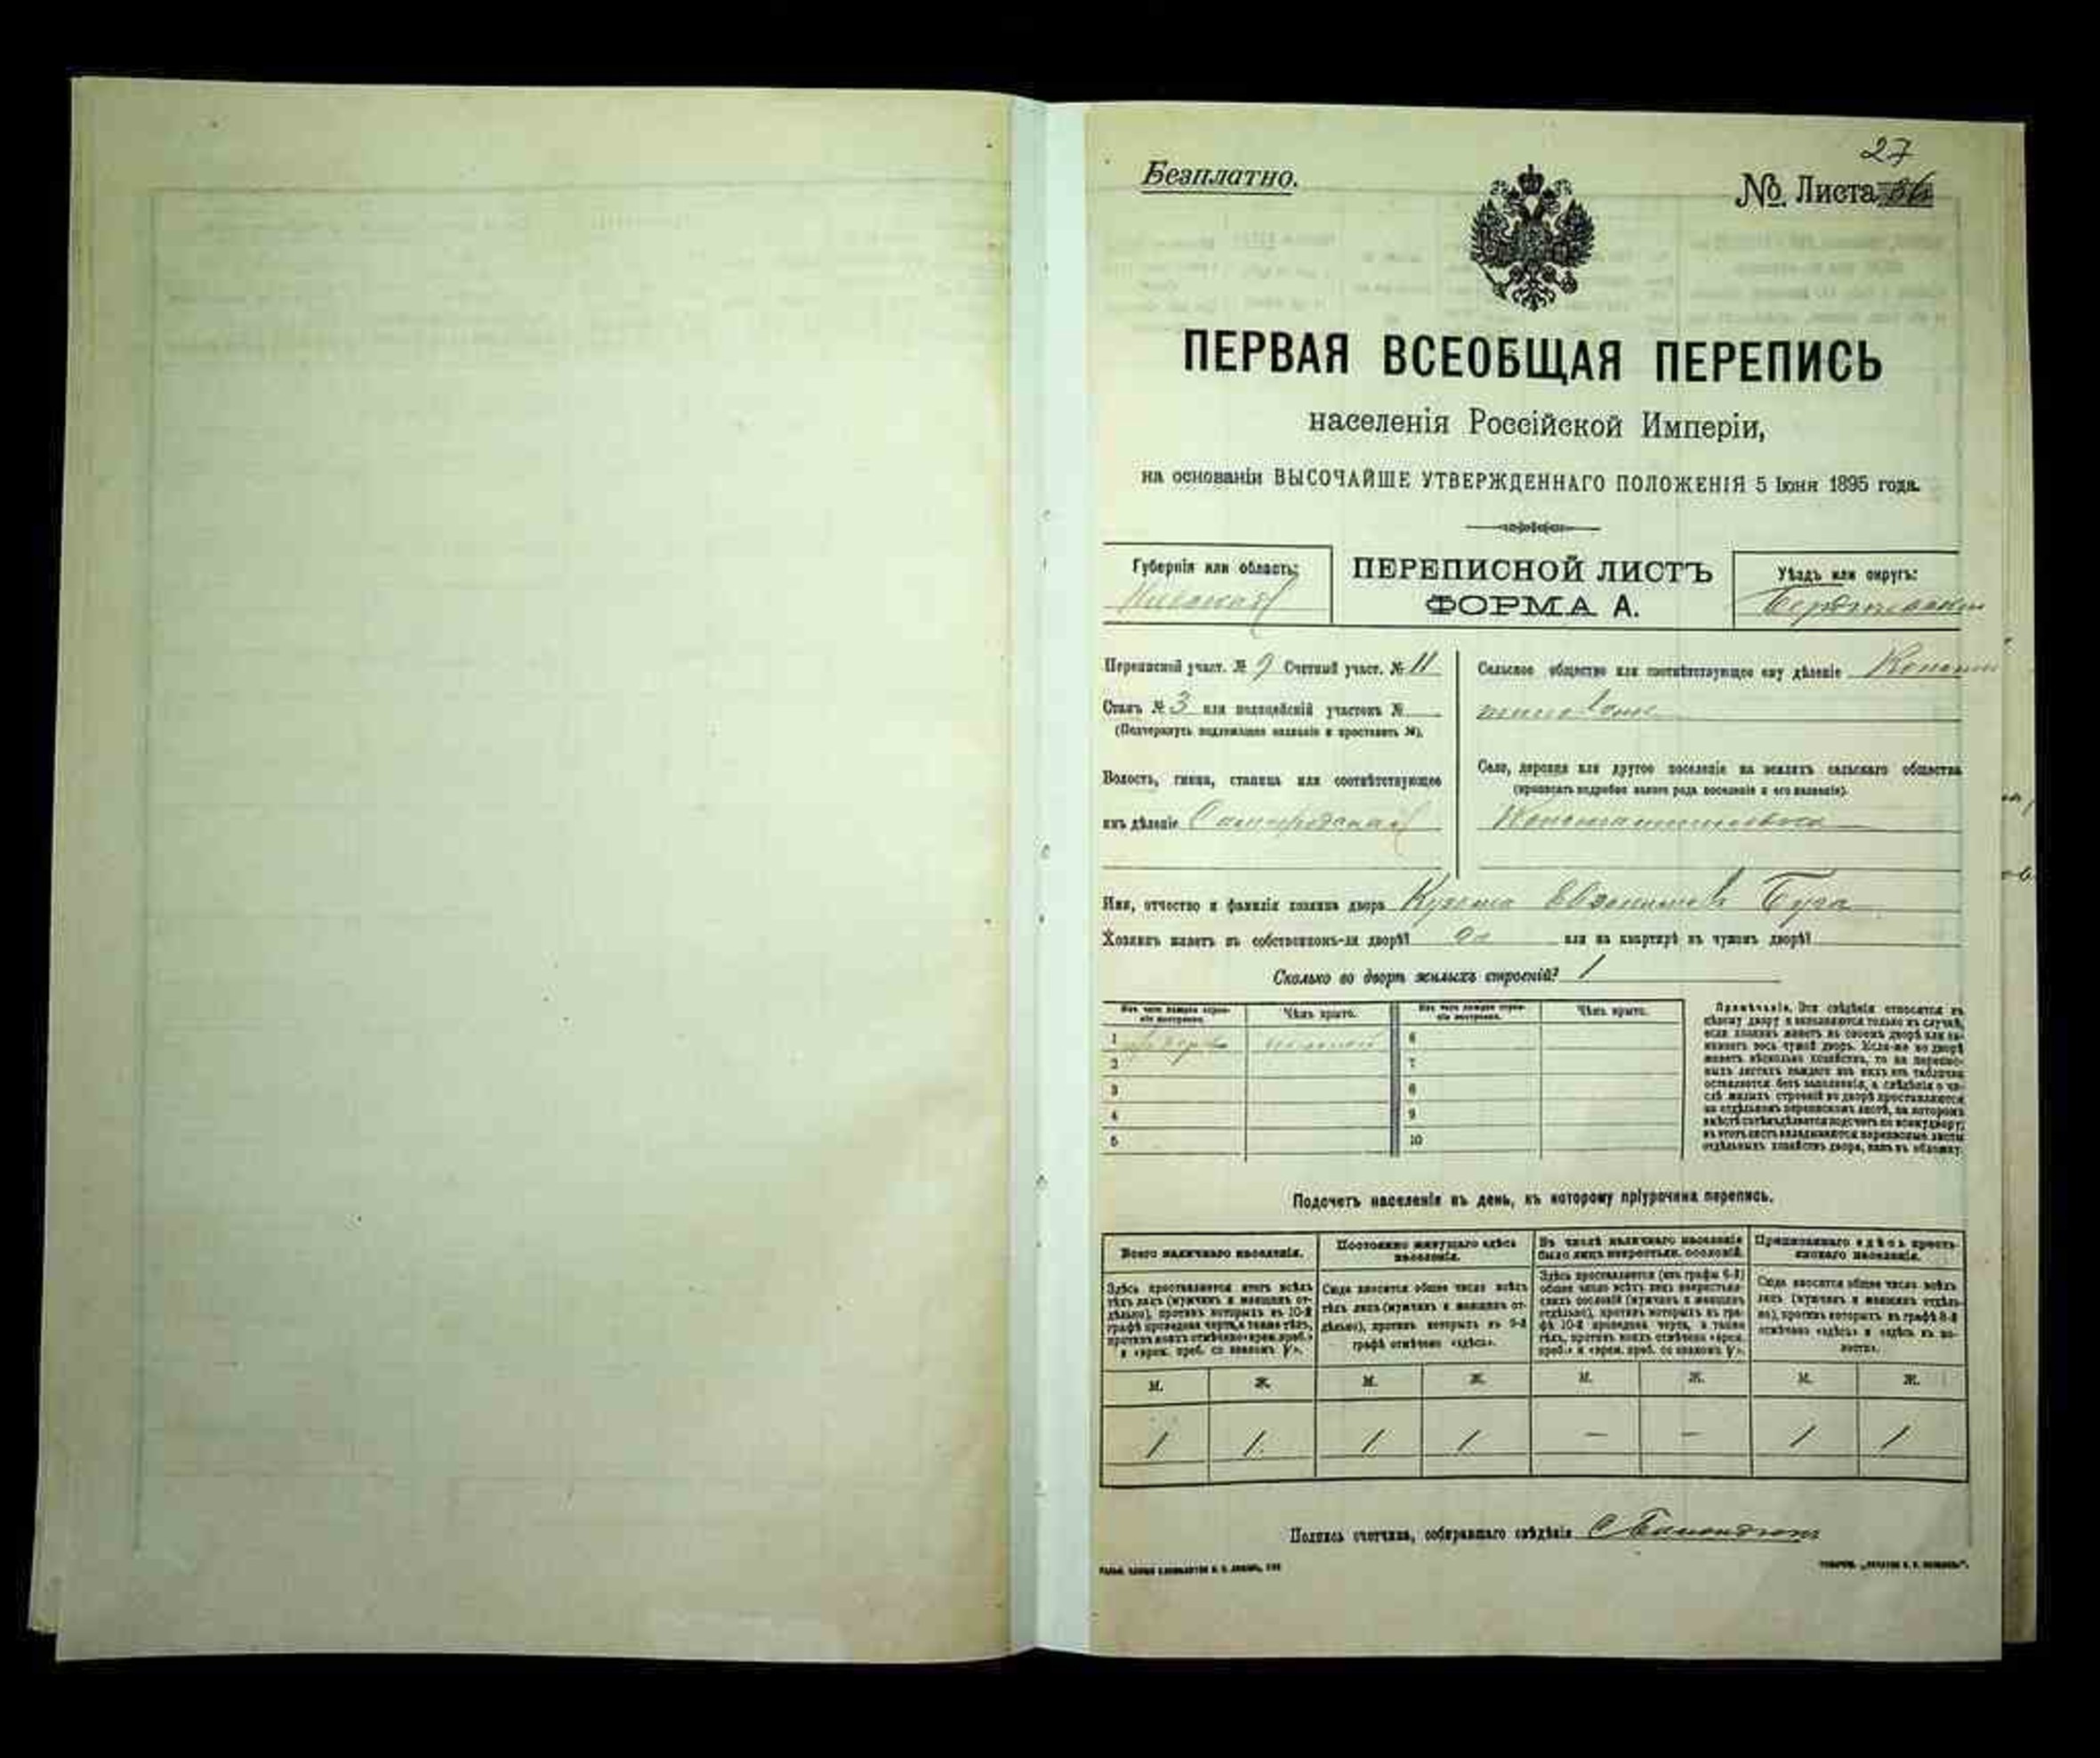 27
Безплатно.
№ Листа
ПЕРВАЯ ВСЕОБЩАЯ ПЕРЕПИСЬ
населенія Россійской Имперіи,
на основаніи ВЫСОЧАЙШЕ УТВЕРЖДЕННАГО ПОЛОЖЕНІЯ 5 Іюня 1895 года.
Губернія или область:
Кіевская
ПЕРЕПИСНОЙ ЛИСТЪ
ФОРМА А.
Уѣздъ или округъ:
Бердичевскій
Переписной участ. № 9 Счетный участ. № 11
Станъ № 3 или полицейскій участокъ №
(Подчеркнуть подлежащее названіе и проставить №).
Волость, гмина, станица или соотвѣтствующее
имъ дѣленіе
Сельское общество или соотвѣтствующее ему дѣленіе
Село, деревня или другое поселеніе на земляхъ сельскаго общества
(прописать подробно какого рода поселеніе и его названіе).
Константиновка
Имя, отчество и фамилія хозяина двора Кузьма Буга
Хозяинъ живетъ въ собственномъ-ли дворѣ? да или на квартирѣ въ чужомъ дворѣ?
Сколько во дворѣ жилыхъ строеній? 1
Изъ чего каждое строеніе построено.
Чѣмъ крыто.
Изъ чего каждое строеніе построено.
Чѣмъ крыто.
1 соломой 6
2 7
3 8
4 9
5 10
Примѣчаніе. Эти свѣдѣнія относятся къ
цѣлому двору и заполняются только въ случаѣ,
если хозяинъ живетъ въ своемъ дворѣ или за-
нимаетъ весь чужой дворъ. Если-же во дворѣ
живетъ нѣсколько хозяйствъ, то на перепис-
ныхъ листахъ каждаго изъ нихъ эта табличка
оставляется безъ заполненія, а свѣдѣнія о чи-
слѣ жилыхъ строеній во дворѣ проставляются
на отдѣльномъ переписномъ листѣ, на которомъ
вмѣстѣ съ тѣмъ дѣлается подсчетъ по всему двору;
въ этотъ листъ вкладываются переписные листы
отдѣльныхъ хозяйствъ двора, какъ въ обложку.
Подсчетъ населенія въ день, къ которому пріурочена перепись.
Всего наличнаго населенія.
Здѣсь проставляется итогъ всѣхъ
тѣхъ лицъ (мужчинъ и женщинъ от-
дѣльно), противъ которыхъ въ 10-й
графѣ проведена черта, а также тѣхъ,
противъ коихъ отмѣчено «врем. преб.»
и «врем. преб. со знакомъ V».
Постоянно живущаго здѣсь
населенія.
Сюда вносится общее число всѣхъ
тѣхъ лицъ (мужчинъ и женщинъ от-
дѣльно), противъ которыхъ въ 9-й
графѣ отмѣчено «здѣсь».
Въ числѣ наличнаго населенія
было лицъ некрестьян. сословій.
Здѣсь проставляется (изъ графы 6-й)
общее число всѣхъ лицъ некрестьян-
скихъ сословій (мужчинъ и женщинъ
отдѣльно), противъ которыхъ въ гра-
фѣ 10-й проведена черта, а также
тѣхъ, противъ коихъ отмѣчено «врем.
преб.» и «врем. преб. со знакомъ V».
Приписаннаго здѣсь кресть-
янскаго населенія.
Сюда вносится общее число всѣхъ
лицъ (мужчинъ и женщинъ отдѣль-
но), противъ которыхъ въ графѣ 8-й
отмѣчено «здѣсь» и «здѣсь въ во-
лости».
М. Ж. М. Ж. М. Ж. М. Ж.
1 1 1 1 — — 1 1
Подпись счетчика, собиравшаго свѣдѣнія